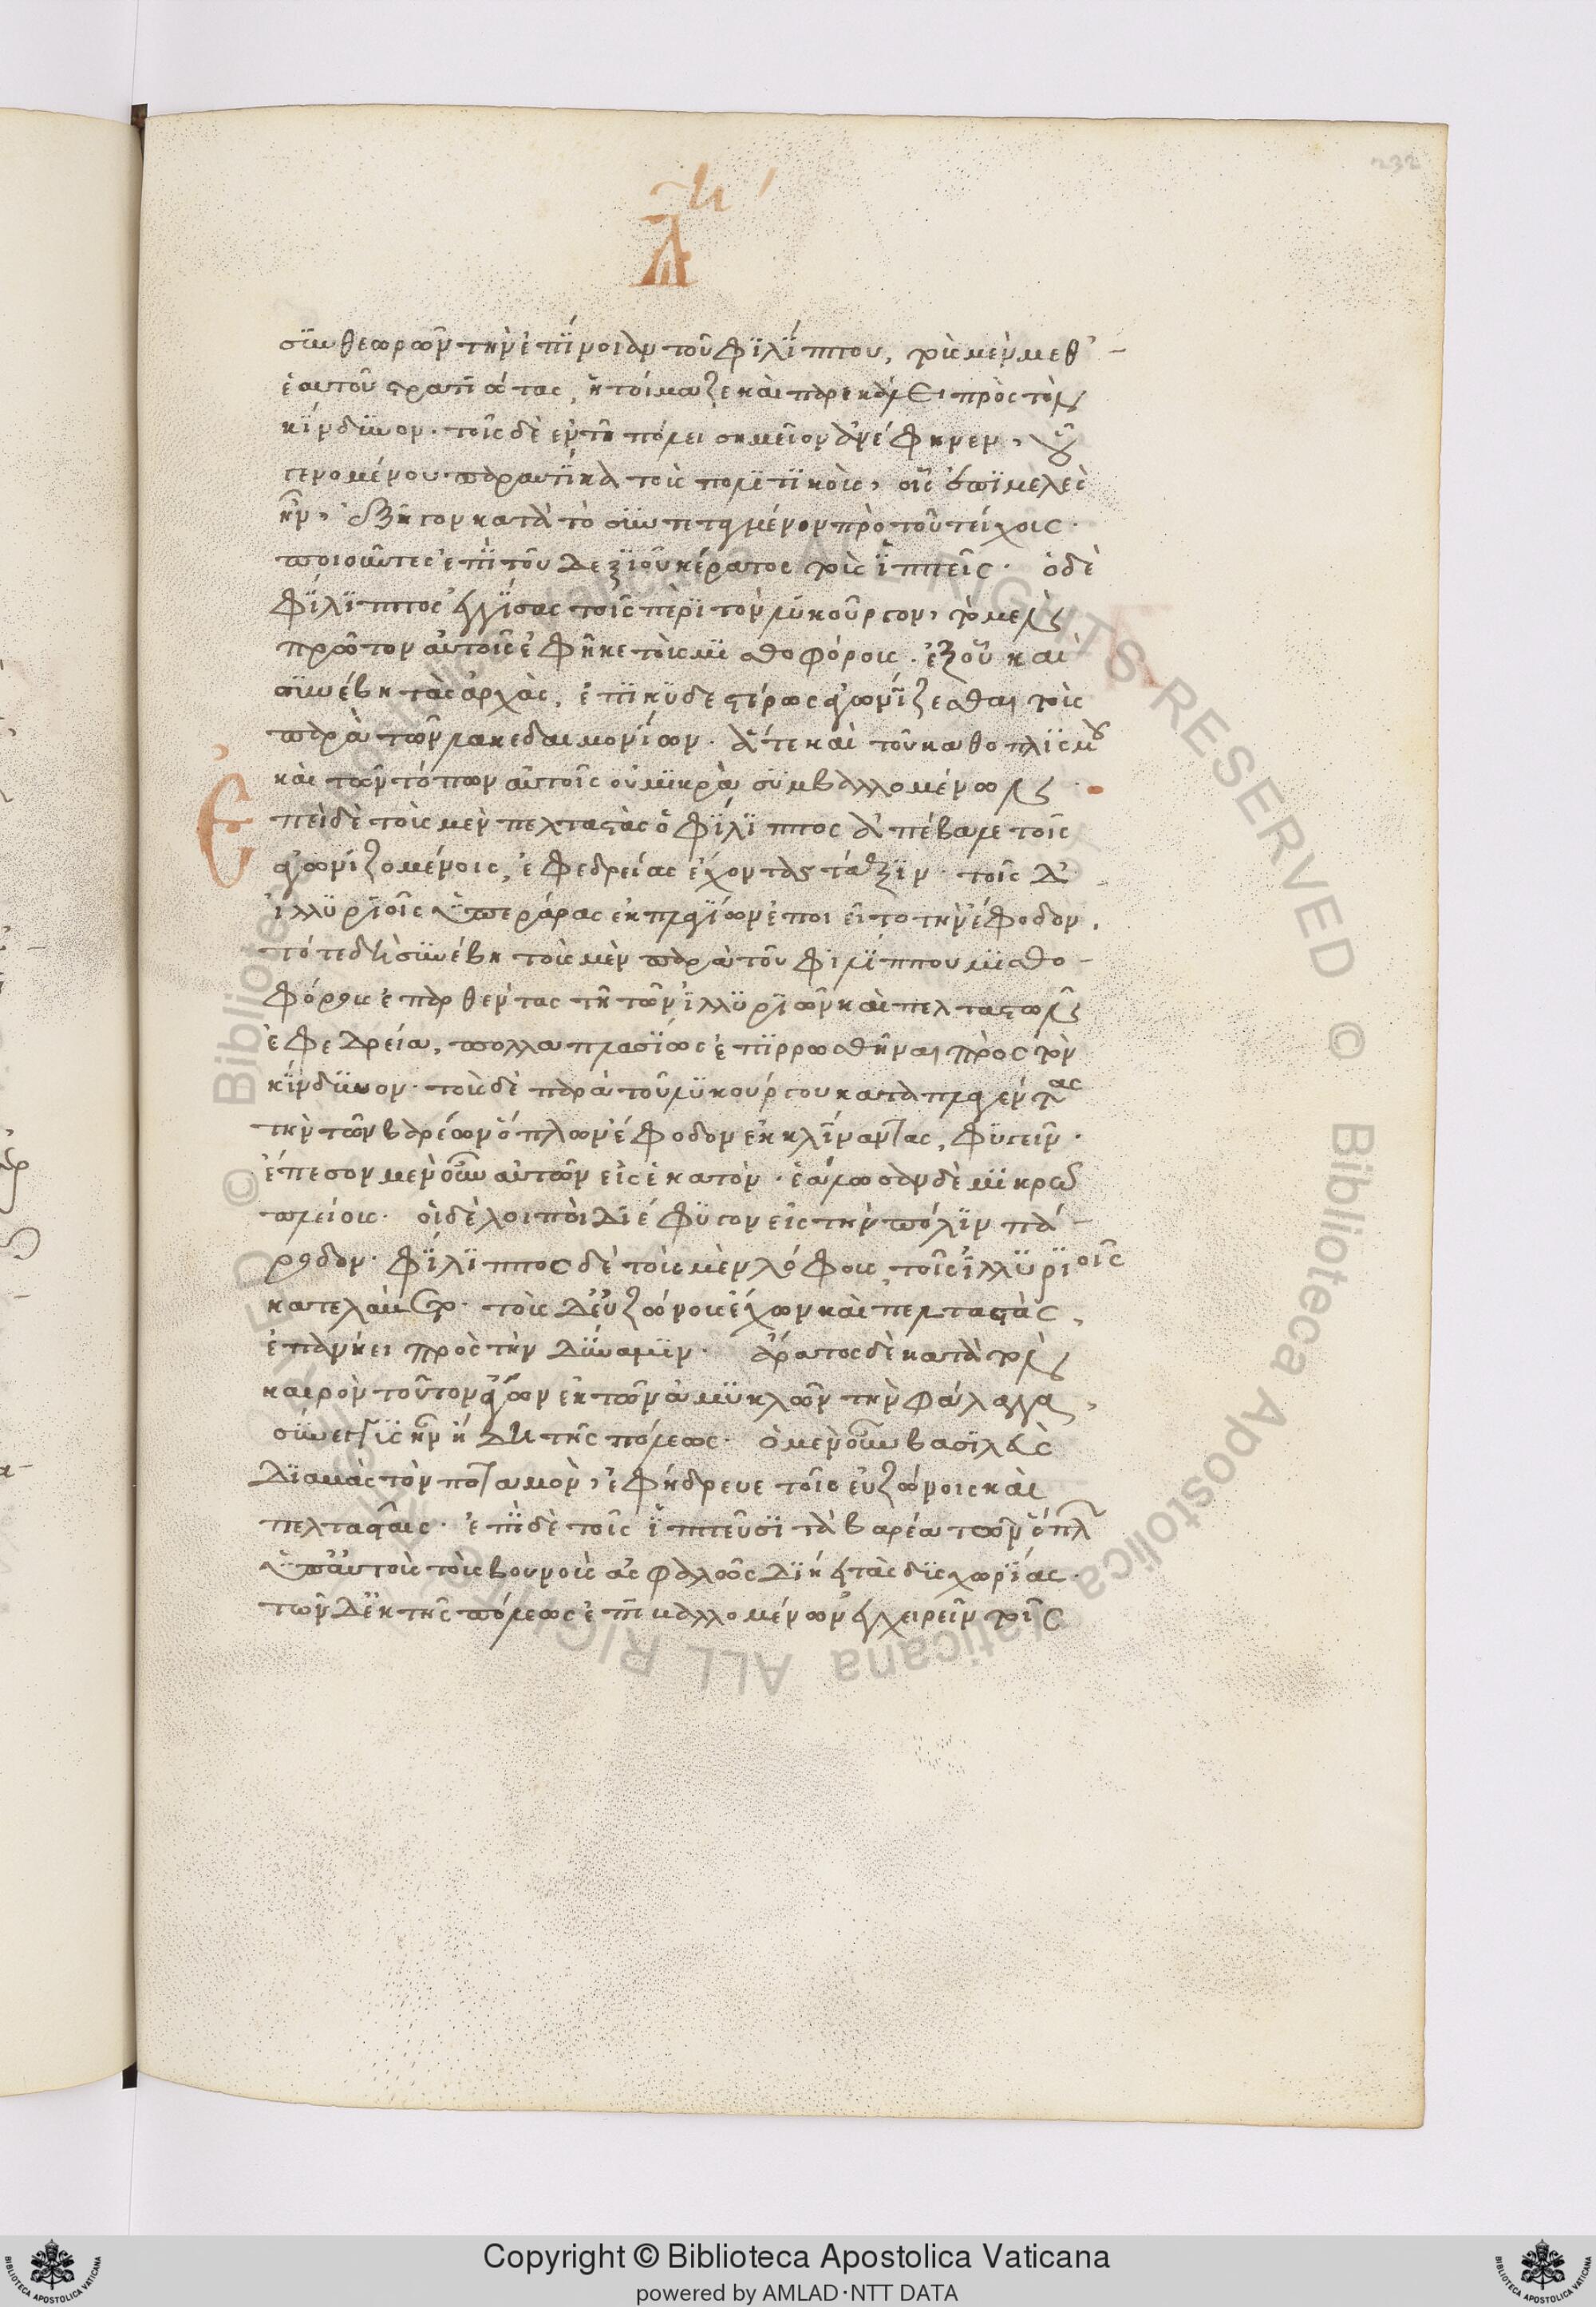 232
συνθεωρῶν τὴν ἐπίνοιαν τοῦ Φιλίππου, τοὺς μὲν μεθ᾽
ἑαυτοῦ στρατιώτας, ἡτοίμαζε καὶ παρεκάλει πρὸς τὸν
κίνδυνον· τοῖς δὲ ἐν τῇ πόλει σημεῖον ἀνέφηνεν, οὗ
γενομένου παραυτίκα τοὺς πολιτικοὺς, οἷς ἐπιμελὲς
ἦν, ἐξῆγον κατὰ τὸ συντεταγμένον πρὸ τοῦ τείχους·
ποιοῦντες ἐπὶ τοῦ δεξιοῦ κέρατος τοὺς ἱππεῖς· ὁ δὲ
Φίλιππος ἐγγίσας τοῖς περὶ τὸν Λυκοῦργον, τὸ μὲν
πρῶτον αὐτοῖς ἐφῆκε τοὺς μισθοφόρους· ἐξ οὗ καὶ
συνέβη τὰς ἀρχὰς, ἐπικυδεστέρως ἀγωνίζεσθαι τοὺς
παρὰ τῶν Λακεδαιμονίων· ἅτε καὶ τοῦ καθοπλισμοῦ
καὶ τῶν τόπων αὐτοῖς οὐ μικρὰ συμβαλλομένων
Ἐπεὶ δὲ τοὺς μὲν πελταστὰς ὁ Φίλιππος ἀπέβαλε τοῖς
ἀγωνιζομένοις, ἐφεδρείας ἔχοντας τάξιν· τοῖς δ᾽
Ἰλλυριοῖς ὑπεράρας ἐκ πλαγίων ἐποιεῖτο τὴν ἔφοδον.
τότε δὴ συνέβη τοὺς μὲν παρὰ τοῦ Φιλίππου μισθο-
φόρους ἐπαρθέντας τῇ τῶν Ἰλλυριῶν καὶ πελταστῶν
ἐφεδρείᾳ, πολλαπλασίως ἐπιρρωσθῆναι πρὸς τὸν
κίνδυνον· τοὺς δὲ παρὰ τοῦ Λυκούργου καταπλαγέντας
τὴν τῶν βαρέων ὅπλων ἔφοδον ἐκκλίναντας, φυγεῖν·
ἔπεσον μὲν οὖν αὐτῶν εἰς ἑκατὸν· ἑάλωσαν δὲ μικρῷ
πλείους· οἱ δὲ λοιποὶ διέφυγον εἰς τὴν πόλιν πά-
ροδον· Φίλιππος δὲ τοὺς μὲν λόφους τοῖς Ἰλλυριοῖς
κατελάμβανε· τοὺς δ᾽ εὐζώνους ἔχων καὶ πελταστὰς,
ἐπανῄει πρὸς τὴν δύναμιν· Ἄρατος δὲ κατὰ τὸν
καιρὸν τοῦτον ἄγων ἐκ τῶν Ἀμυκλῶν τὴν φάλαγγα,
σύνεγγυς ἦν ἤδη τῆς πόλεως· ὁ μὲν οὖν βασιλεὺς
διαβὰς τὸν ποταμὸν, ἐφήδρευε τοῖς εὐζώνοις καὶ
πελτασταῖς· ἐπὶ δὲ τοῖς ἱππεῦσι τὰ βαρέα τῶν ὅπλ
ὑπ᾽ αὐτοὺς τοὺς βουνοὺς ἀσφαλῶς διήει τὰς δυσχωρίας·
τῶν δ᾽ ἐκ τῆς πόλεως ἐπιβαλλομένων ἐγχειρεῖν τοῖς
Copyright © Biblioteca Apostolica Vaticana
powered by AMLAD·NTT DATA